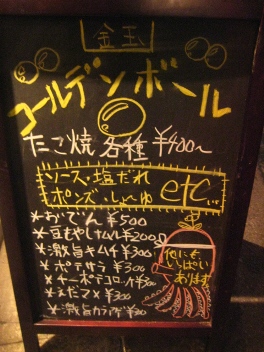 金玉
ゴールデンボール
たこ焼 各種 ¥400〜
ソース・塩だれ
ポンズ・しょうゆ etc...
*おでん ¥500
*豆もやしナムル ¥200
*激旨キムチ ¥300
*ポテサラ ¥300
*えだマメ ¥300
*激旨カラアゲ ¥500
他にも
いっぱい
あります